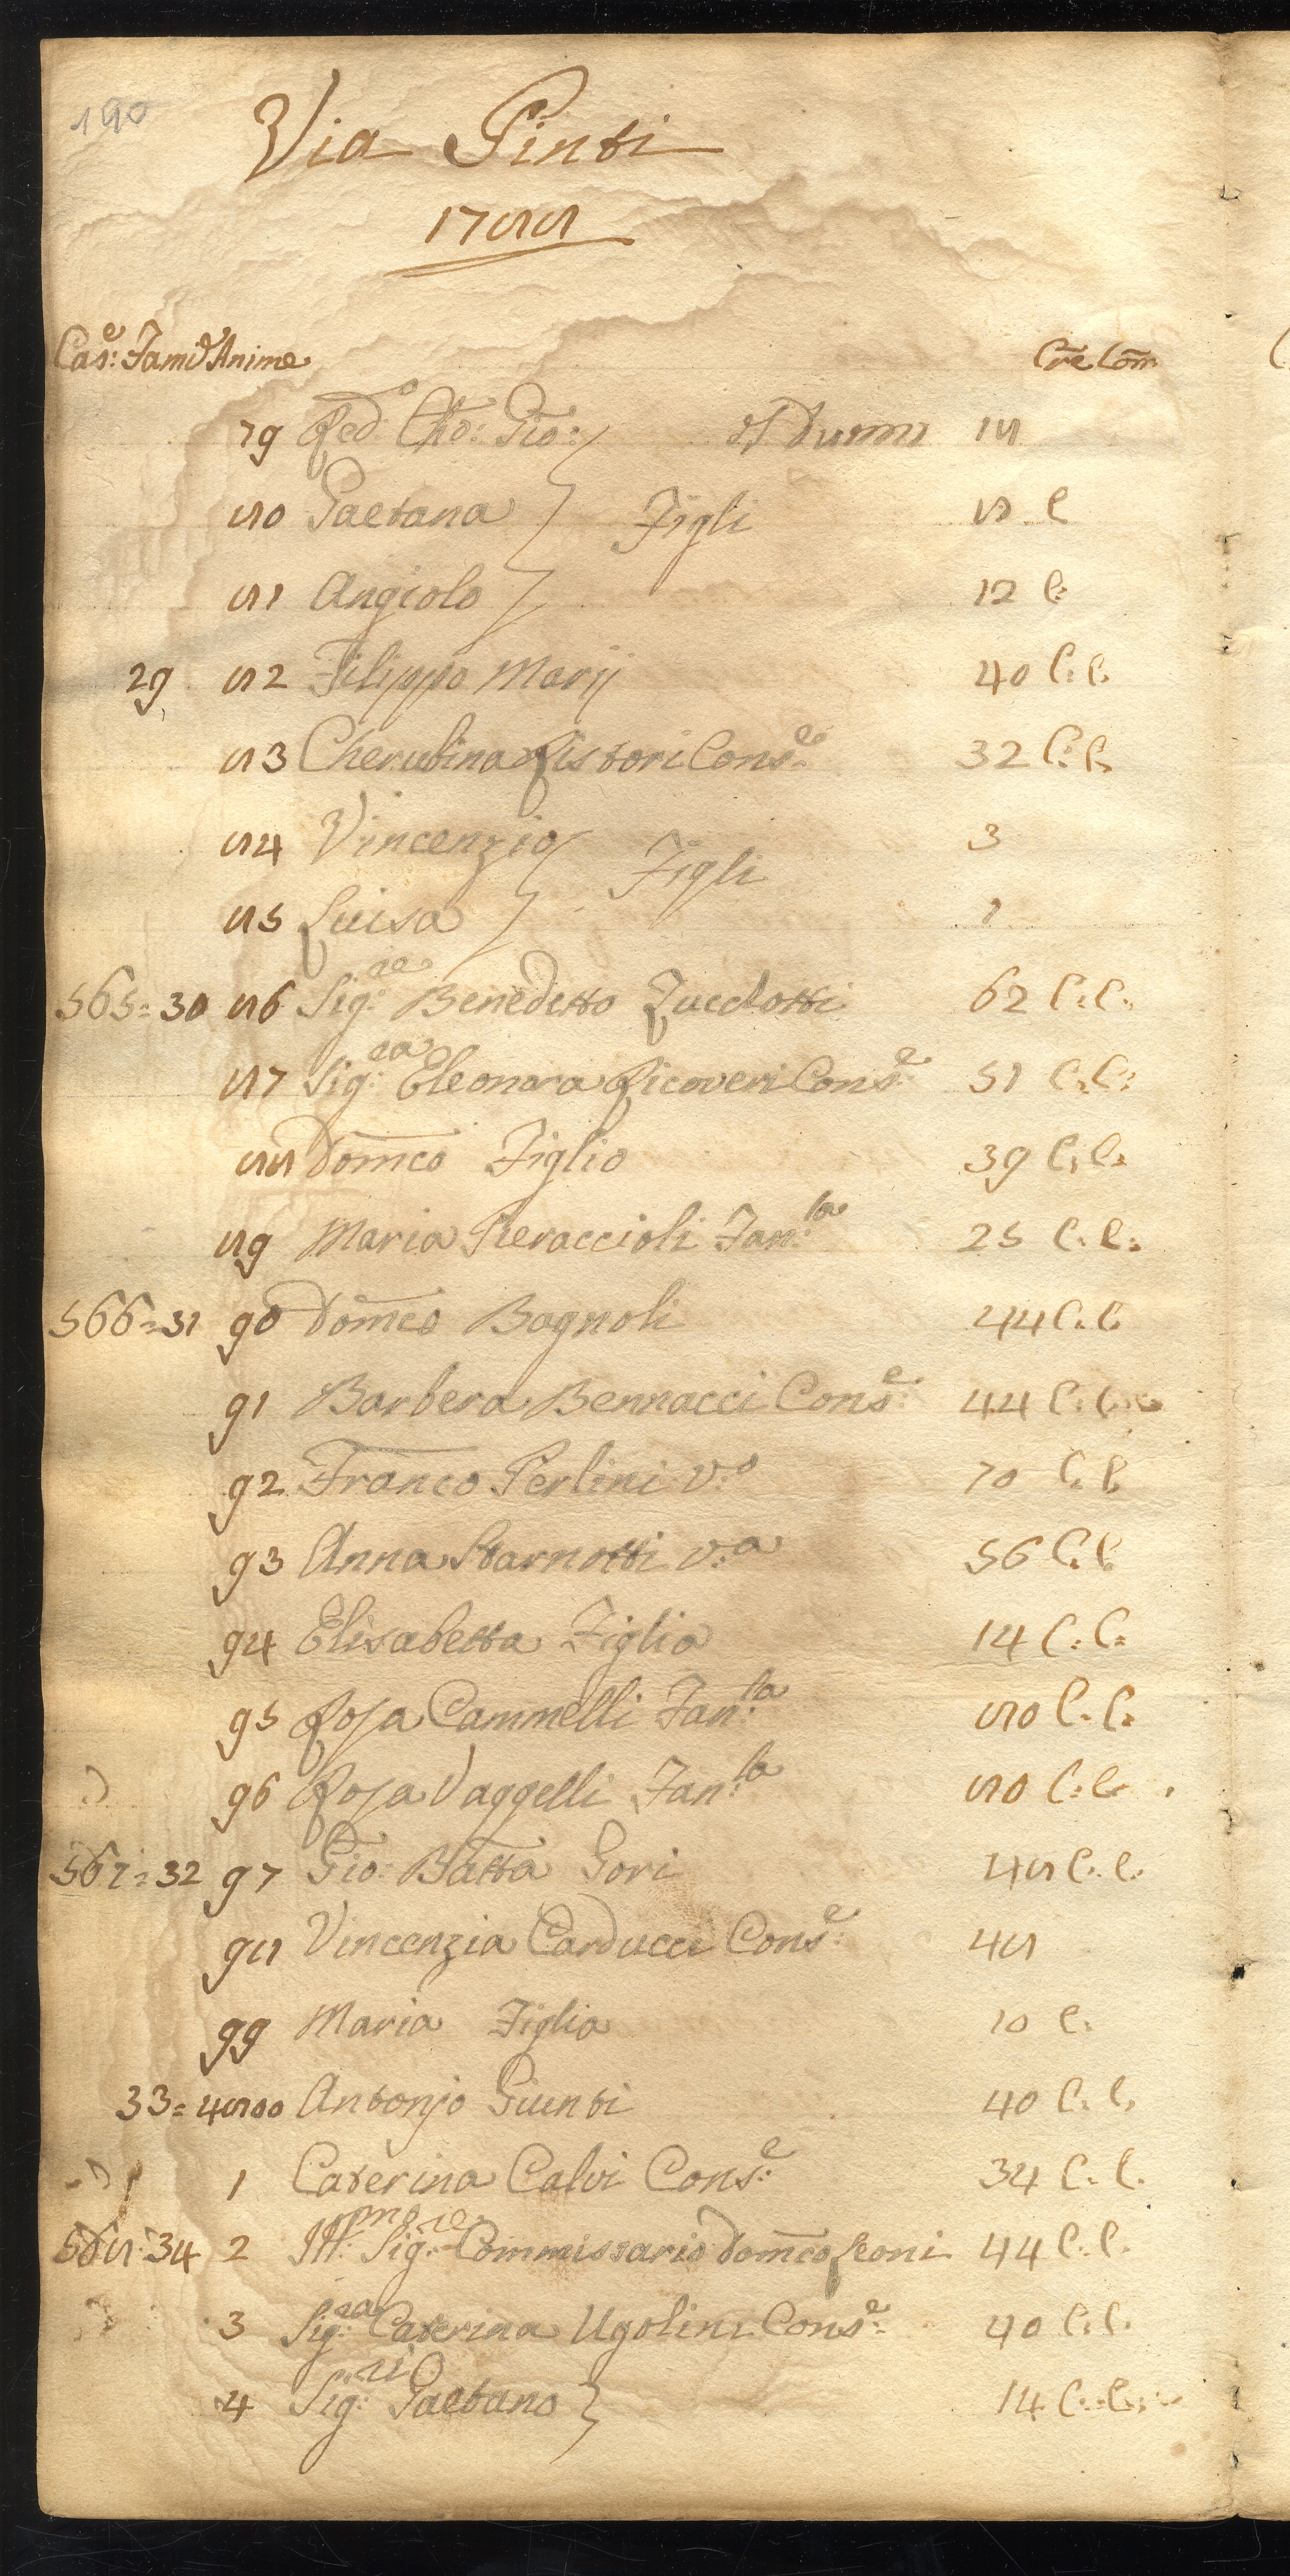 190
Via Pinti
1788
Cas:e Fam:e Anime Cre Com
79 Red:o Cho: Gio: 18
80 Gaetana } Figli 8 C
81 Angiolo 12 C:
29 82 Filippo Marij 40 C: C.
83 Cherubina Ristori Cons:e 32 C: C.
84 Vincenzio } Figli 3
85 Luisa 1
565=30 86 Sig:re Benedetto Zucchotti 62 C: C:
87 Sig:ra Eleonora Ricoveri Cons:e 51 C: C:
88 Domco Figlio 39 C: C:
89 Maria Pieraccioli Fan:la 25 C: C:
566=31 90 Domco Bagnoli 44 C: C.
91 Barbera Bennacci Cons:e 44 C: C:
92 Franco Perlini v:o 70 C: C
93 Anna Starnotti v:a 56 C: C
94 Elisabetta Figlia 14 C: C:
95 Rosa Cammelli Fan:la 80 C: C:
96 Rosa Vaggelli Fan:la 80 C: C.
567=32 97 Gio: Batta Gori 48 C: C.
98 Vincenzia Carducci Cons:e 48
99 Maria Figlia 10 C.
33=4800 Antonjo Giunti 40 C: C.
1 Caterina Calvi Cons:e 34 C: C.
568=34 2 Ill:mo Sig:re Commissario Domco Leoni 44 C: C.
3 Sig:ra Caterina Ugolini Cons:e 40 C: C.
4 Sig:ri Gaetano } 14 C: C: